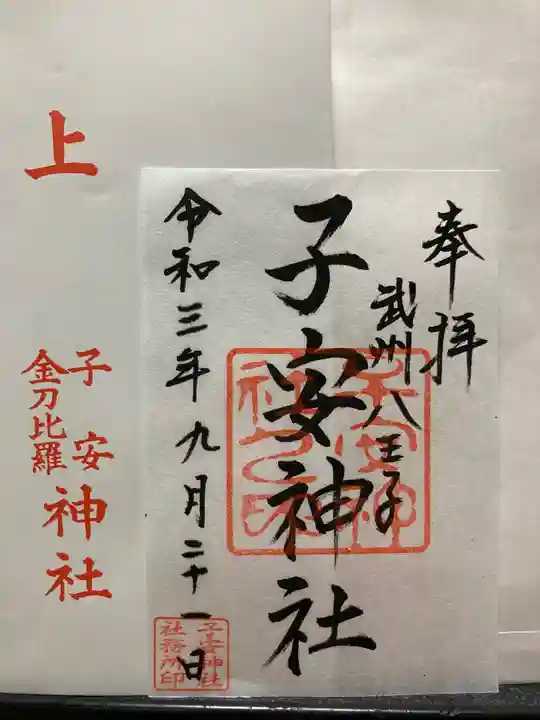 奉拝
武州八王子
子安神社
令和三年九月二十一日
子安神社
社務所印
上
子安
金刀比羅
神社